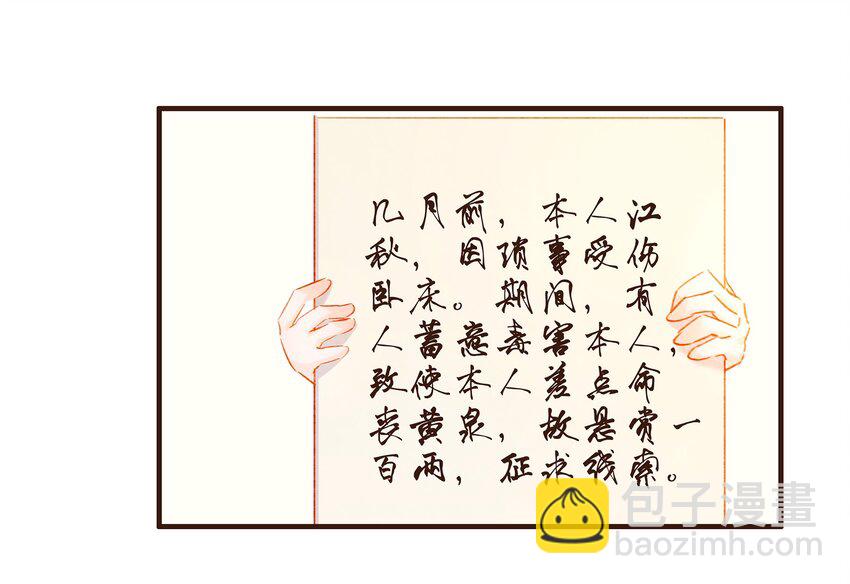 几月前，本人江
秋，因琐事受伤
卧床。期间，有
人蓄意毒害本人，
致使本人差点命
丧黄泉，故悬赏一
百两，征求线索。
包子漫畫
baozimh.com